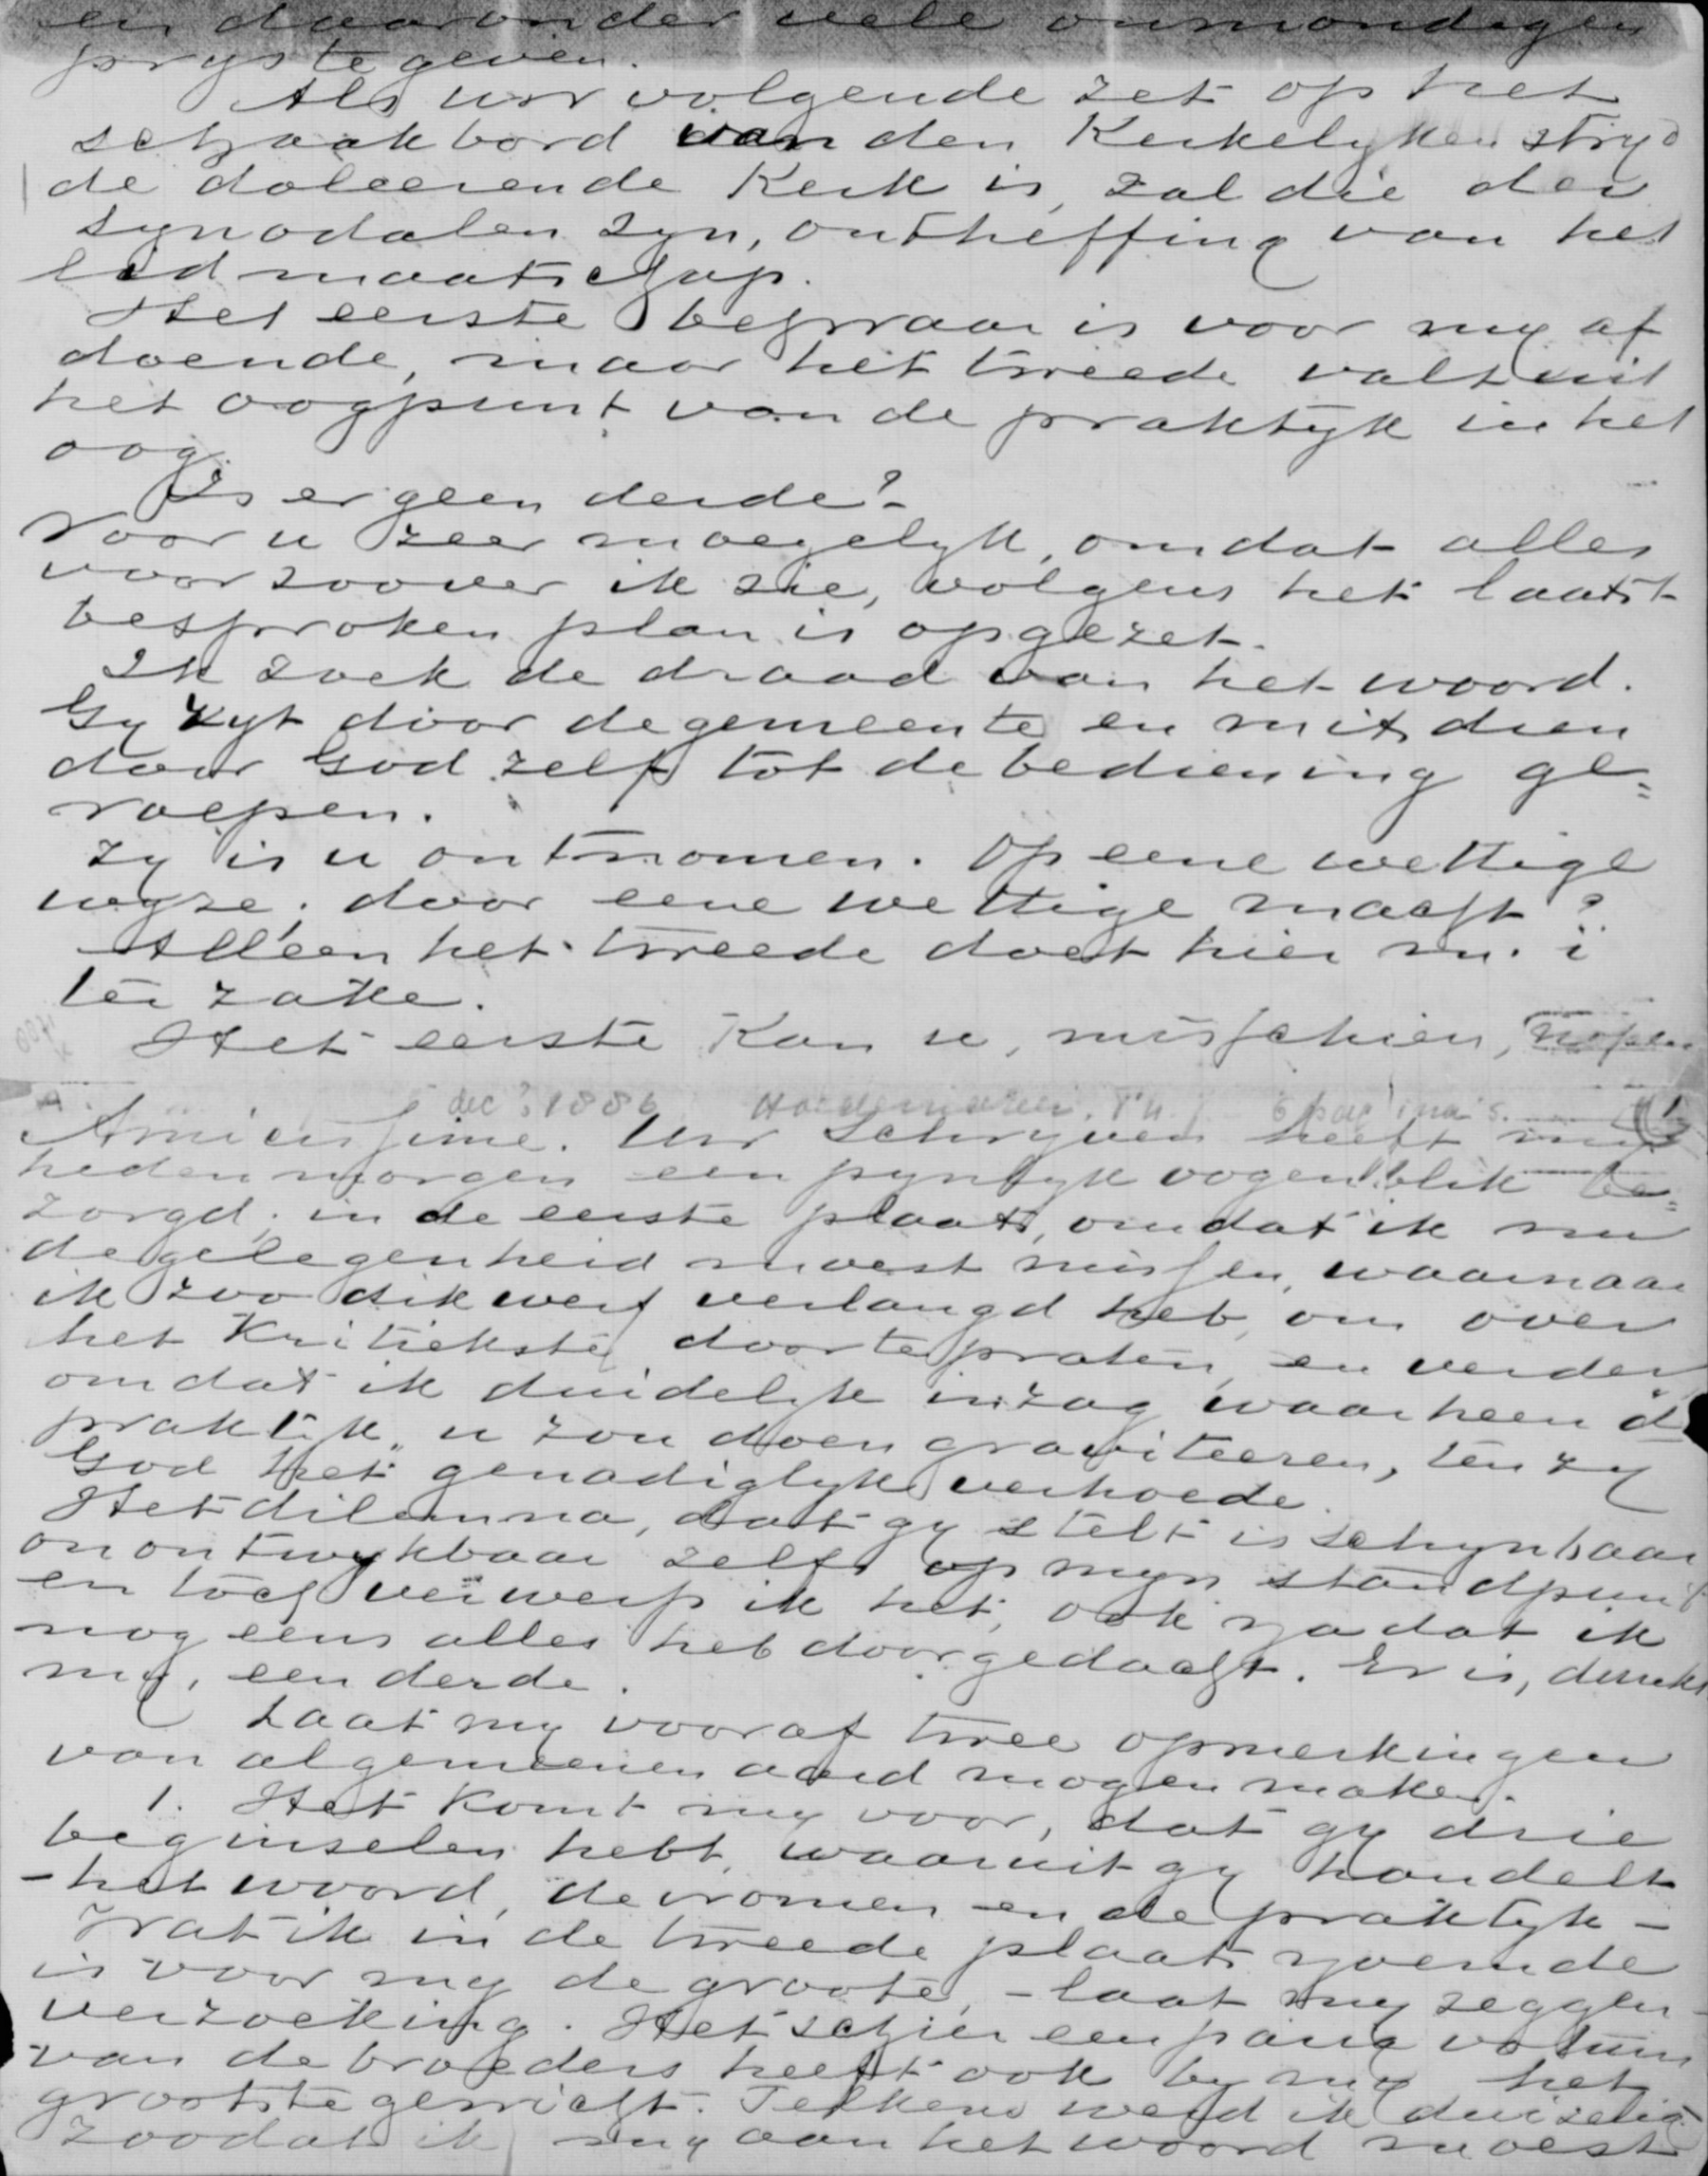 en daaronder vele onmondigen
prys te geven.
Als uw volgende zet op het
schaakbord van den Kerkelyken stryd
de doleerende Kerk is, zal die der
synodalen zyn, ontheffing van het
lidmaatschap.
Het eerste bezwaar is voor my af
doende, maar het tweede valt uit
het oogpunt van de praktyk in het
oog.
Is er geen derde?
Voor u zeer moegelyk, omdat alles
voorzoover ik zie, volgens het laatst
besproken plan is opgezet.
Ik zoek de draad van het woord.
Gy zyt door de gemeente en mitsdien
door God zelf tot de bediening ge=
roepen.
Zy is u ontnomen. Op eene wettige
wyze; door eene wettige macht?
Alleen het tweede doet hier m. i
ter zake.
Het eerste Kan u, misschien, nopen
dec. 1886 Hoedemaker. Ph. J 6 pagina's. 1
Amicissime. Uw schryven heeft my
heden morgen een pynlyk oogenblik be=
zorgd; in de eerste plaats, omdat ik nu
de gelegenheid moest missen, waarnaar
ik zoo dikwerf verlangd heb, om over
het Kritiekste door te praten, en verder
omdat ik duidelyk inzag waarheen d
praktyk" u zou doen graviteeren, ten zy
God het genadiglyk verhoede.
Het dilemna, dat gy stelt is schynbaar
onontwykbaar zelfs op myn standpunt
en toch verwerp ik het, ook nadat ik
nog eens alles heb doorgedacht. Er is, dunkt
my, een derde.
Laat my vooraf twee opmerkingen
van algemeenen aard mogen maken.
1. Het Komt my voor, dat gy drie
beginselen hebt, waaruit gy handelt
- het woord, de vromen en de praktyk -
Wat ik in de tweede plaats noemde
is voor my de groote, - laat my zeggen -
verzoeking. Het schier eenparig votum
van de broeders heeft ook by my het
grootste gewicht. Telkens werd ik duizelig
zoodat ik my aan het woord moest